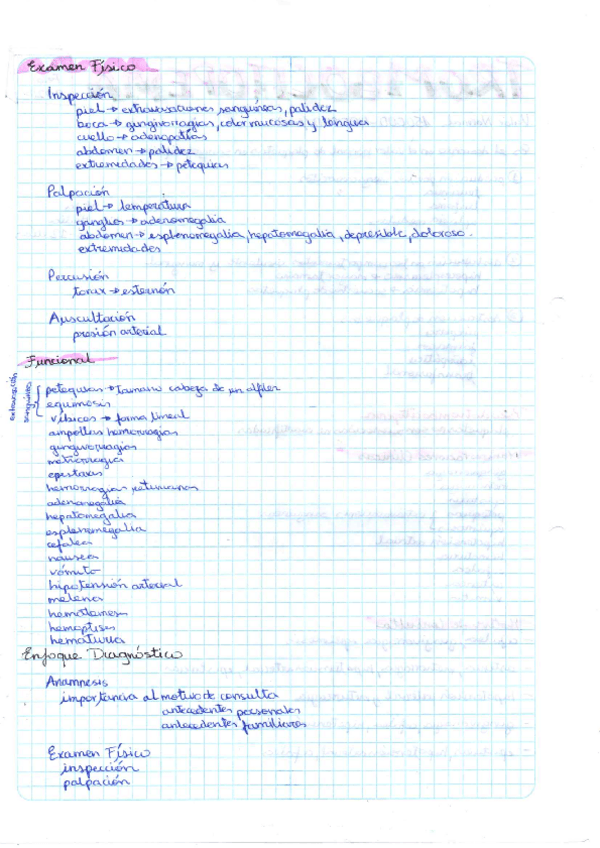 Examen Físico
Inspección
piel → extravasaciones sanguineas, palidez
boca → gingivorragias, color mucosas y lengua
cuello → adenopatías
abdomen → palidez
extremidades → petequias
Palpación
piel → temperatura
ganglios → adenomegalia
abdomen → esplenomegalia, hepatomegalia, depresible, doloroso.
extremidades
Percusión
torax → esternón
Auscultación
presión arterial
Funcional
extravasación
sanguinea
petequias → tamaño cabeza de un alfiler
equimosis
víbices → forma lineal
ampollas hemorragias
gingivorragias
metrorragia
epistaxis
hemorragias retinianas
adenomegalia
hepatomegalia
esplenomegalia
cefalea
nausea
vómito
hipotensión arterial
melena
hematemesis
hemoptisis
hematuria
Enfoque Diagnóstico
Anamnesis
importancia al motivo de consulta
antecedentes personales
antecedentes familiares
Examen Físico
inspección
palpación